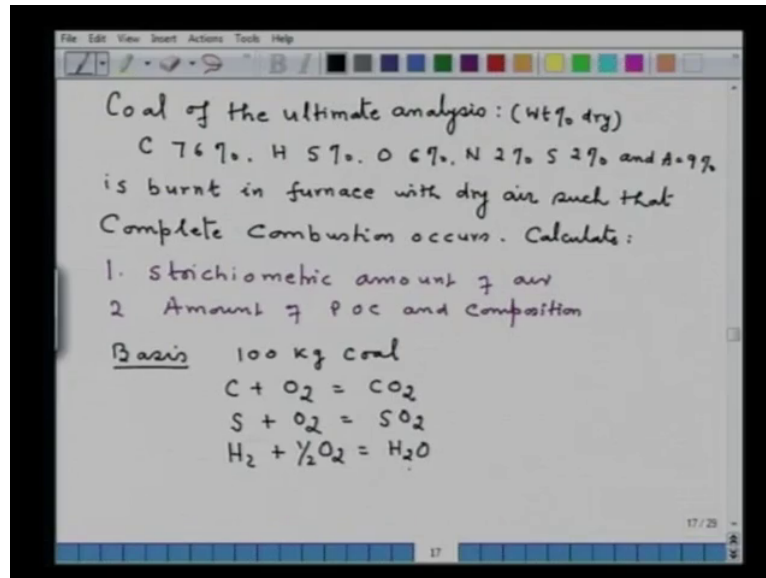 File Edit View Insert Actions Tools Help
B I
Coal of the ultimate analysis: (wt% dry)
C 76%. H 5%. O 6%. N 2% S 2% and A=9%
is burnt in furnace with dry air such that
Complete Combustion occurs. Calculate:
1. Stoichiometric amount of air
2 Amount of POC and Composition
Basis 100 kg coal
C + O2 = CO2
S + O2 = SO2
H2 + ½O2 = H2O
17/29
17